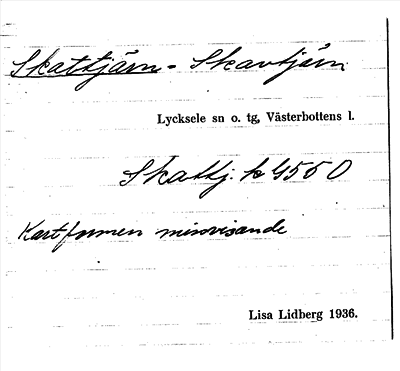 Skattjärn - Skavtjärn
Lycksele sn o. tg, Västerbottens l.
Skattj. k 4550
Kartformen missvisande
Lisa Lidberg 1936.